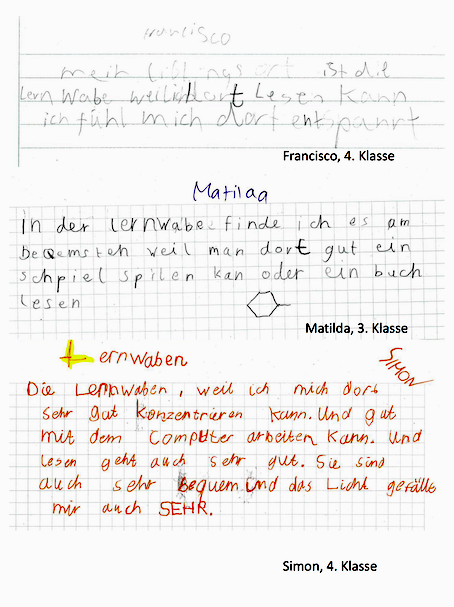 Francisco
mein liblingsort ist die
Lern Wabe weil ich dort Lesen kann
ich fühl mich dort entspannt
Francisco, 4. Klasse
Matilda
In der lernwabe finde ich es am
beqemsten weil man dort gut ein
schpiel spilen kan oder ein buch
lesen
Matilda, 3. Klasse
Lernwaben
SIMON
Die Lernwaben, weil ich mich dort
sehr gut Konzentrieren kann. Und gut
mit dem Computer arbeiten kann. Und
lesen geht auch sehr gut. Sie sind
auch sehr bequem Und das Licht gefällt
mir auch SEHR.
Simon, 4. Klasse